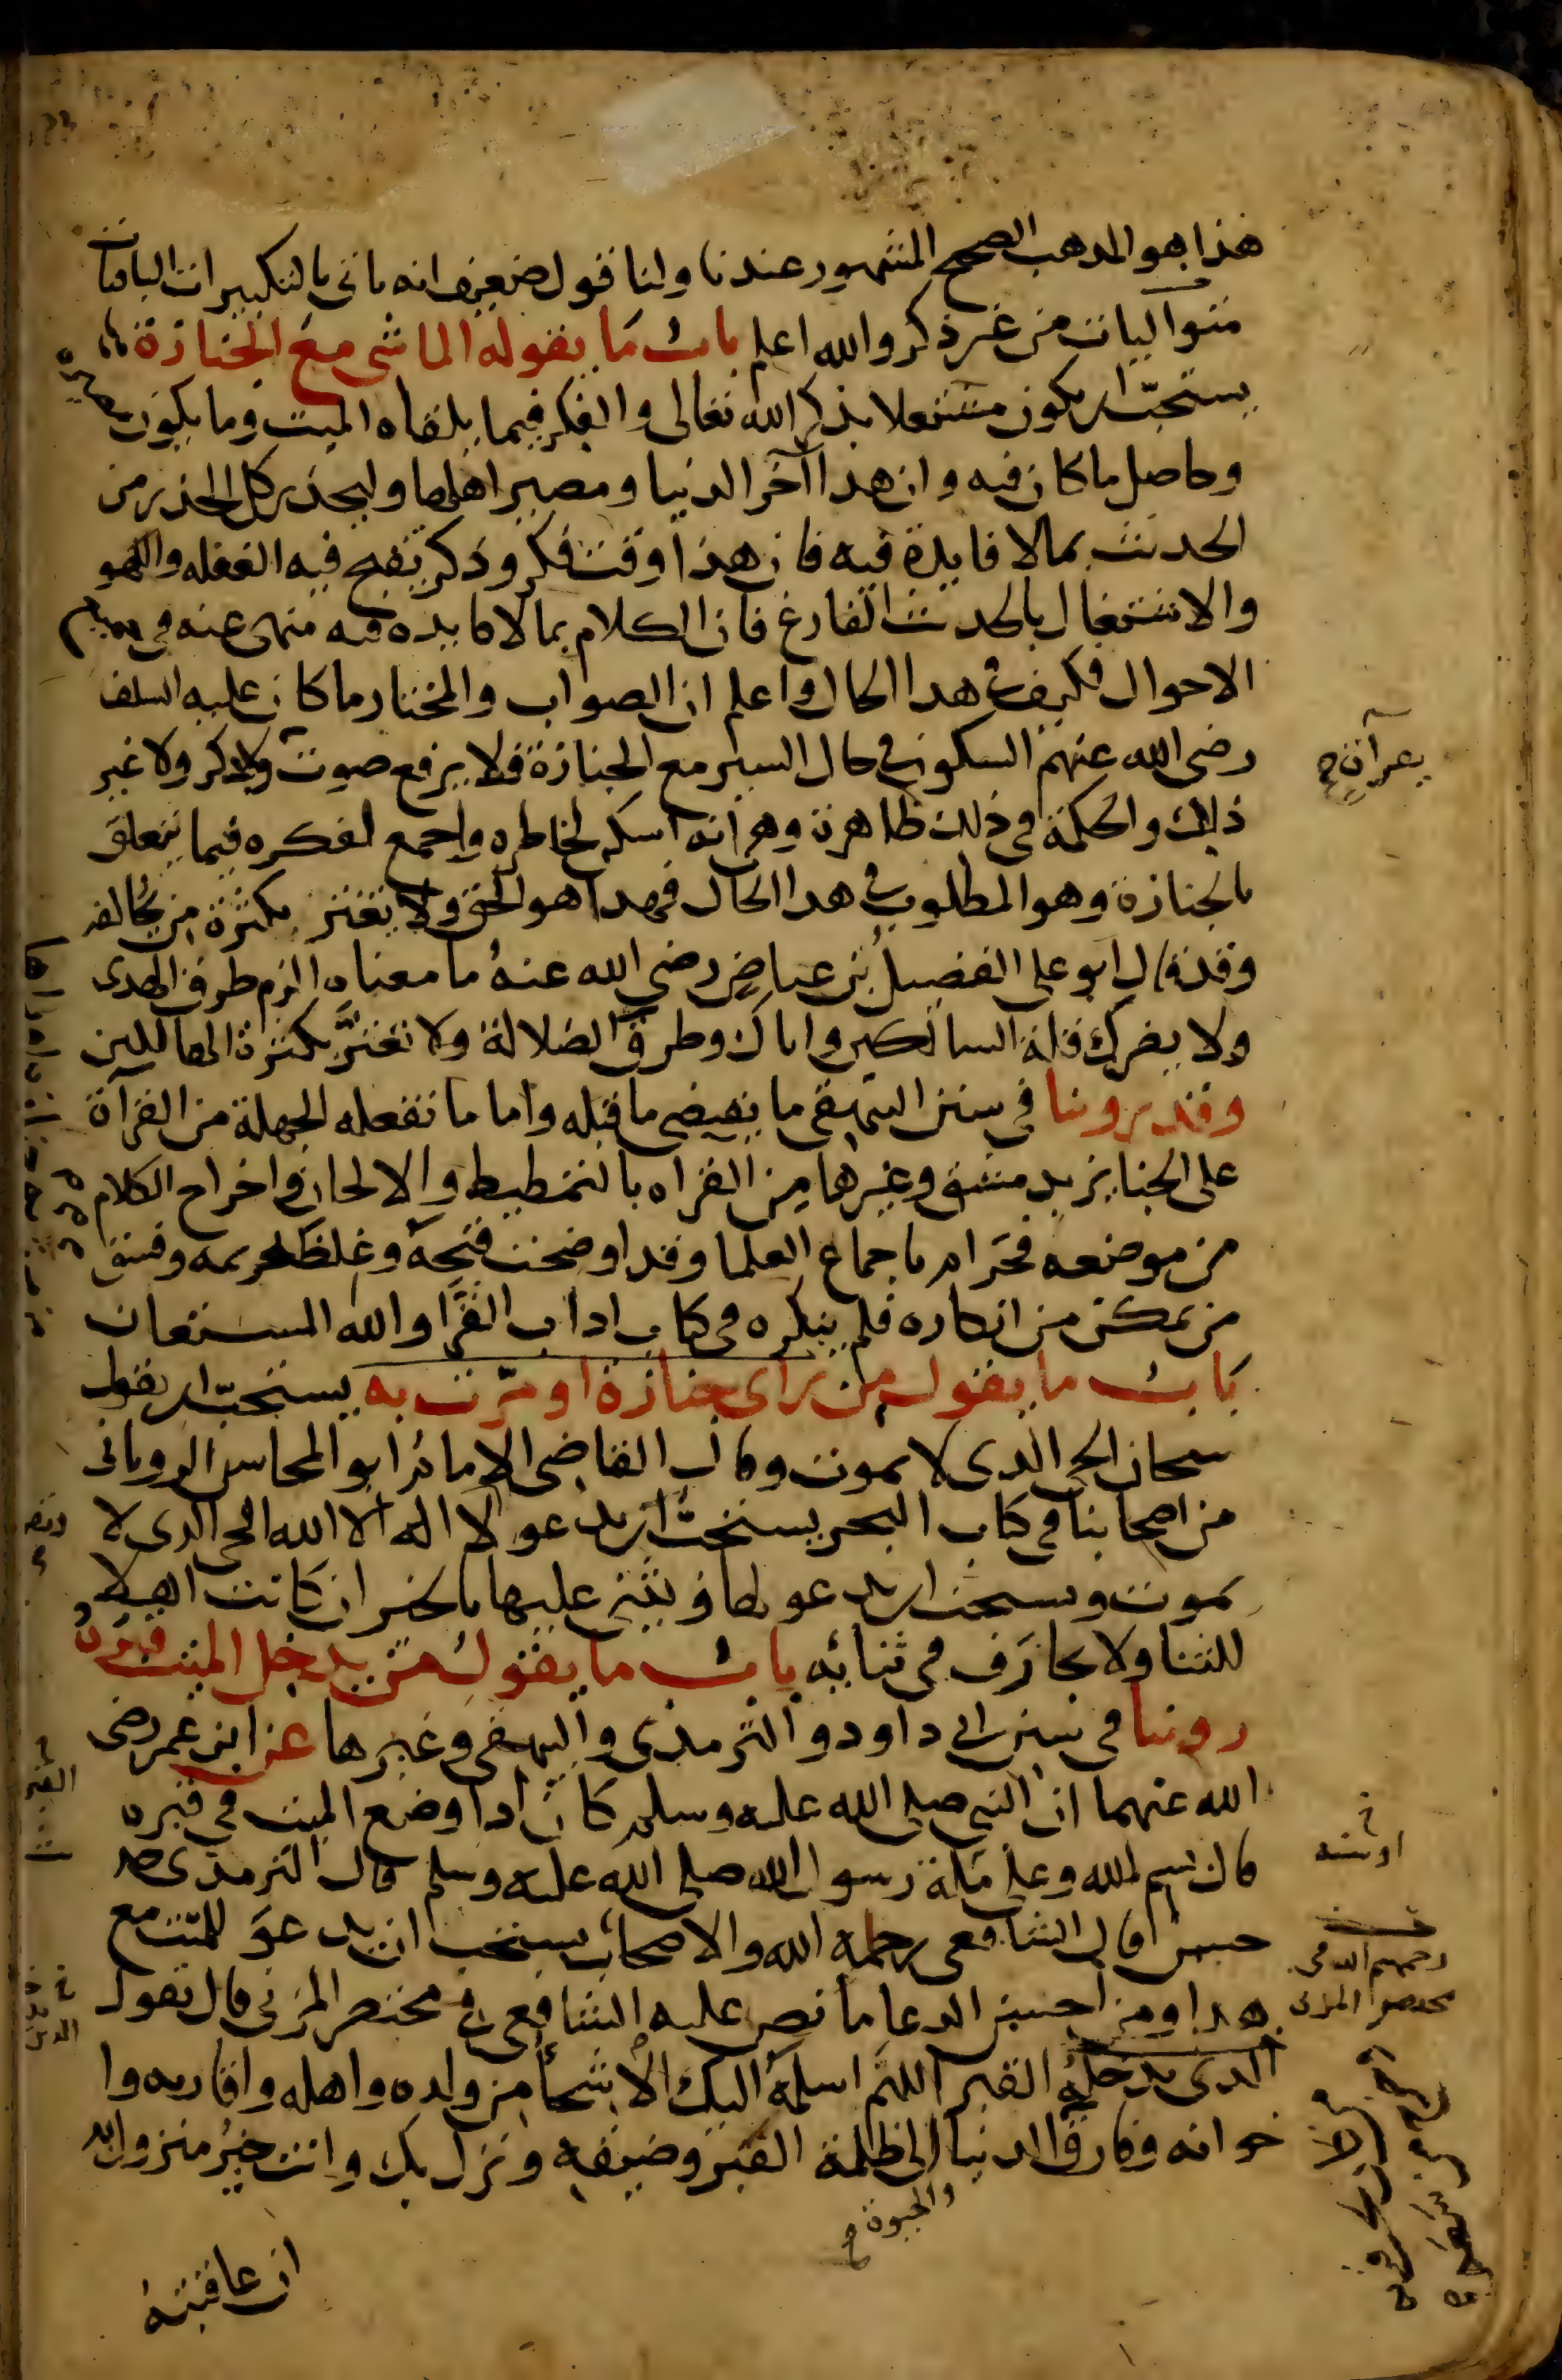 هذا هو المذهب الصحيح المشهور عندنا ولنا قول ضعيف انه ياتي بالتكبيرات الباقيات
متواليات من غير ذكر والله اعلم باب ما يقوله الماشي مع الجنازة
يستحب ان يكون مشتغلا بذكر الله تعالى والفكر فيما يلقاه الميت وما يكون مصيره
وحاصل ما كان فيه وان هذا آخر الدنيا ومصير اهلها وليحذر كل الحذر من
الحديث بمالا فايدة فيه فان هذا وقت فكر وذكر تقبح فيه الغفله واللهو
والاشتغال بالحديث الفارغ فان الكلام بما لا فايده فيه منهى عنه في جميع
الاحوال فكيف في هذا الحال واعلم ان الصواب والمختار ما كان عليه السلف
رضى الله عنهم السكوت في حال السير مع الجنازة فلا يرفع صوت ولا ذكر ولا غير
ذلك والحكمة في ذلك ظاهرة وهى انه اسكن لخاطره واجمع لفكره فيما يتعلق
بالجنازة وهو المطلوب في هذا الحال فهذا هو الحق ولا تغتر بكثرة من يخالفه
وقد قال ابو على الفضيل بن عياض رضي الله عنه ما معناه الزم طرق الهدى
ولا يضرك قلة السالكين واياك وطرق الضلالة ولا تغتر بكثرة الهالكين
وقد روينا في سنن البيهقي ما يقتضي ما قبله واما ما تفعله الجهلة من القرآة
على الجنايز بدمشق وغيرها من القراه بالتمطيط والالحان واخراج الكلام
من موضعه فحرام باجماع العلما وقد اوضحت قبحه وغلظ تحريمه وفسق
من تمكن من انكاره فلم ينكره في كتاب اداب القرا والله المستعان
باب ما يقول من راى جنازة او مرت به يستحب ان يقول
سبحان الحي الذي لا يموت وقال القاضي الامام ابو المحاسن الروياني
من اصحابنا في كتاب البحر يستحب ان يدعو لا اله الا الله الحي الذي لا
يموت ويستحب ان يدعو لها ويثني عليها بالخير ان كانت اهلا
للثنا ولا يجازف في ثنائه باب ما يقول من يدخل الميت قبره
روينا في سنن ابي داود والترمذي والبيهقي وغيرها عن ابن عمر رضي
الله عنهما ان النبي صلى الله عليه وسلم كان اذا وضع الميت في قبره
قال بسم الله وعلى ملة رسول الله صلى الله عليه وسلم قال الترمذي حد
حسن قال الشافعي رحمه الله والاصحاب يستحب ان يدعو للميت مع
هذا ومن احسن الدعا ما نص عليه الشافعي في مختصر المزني قال يقول
الذي يدخله القبر اللهم اسلمه اليك الاشحا من ولده واهله واقاربه وا
خوانه وفارق الدنيا الى ظلمة القبر وضيقه ونزل بك وانت خير منزول به
والحيوة
ان عاقبته
او سنه
رحمهم الله في
مختصر المزني